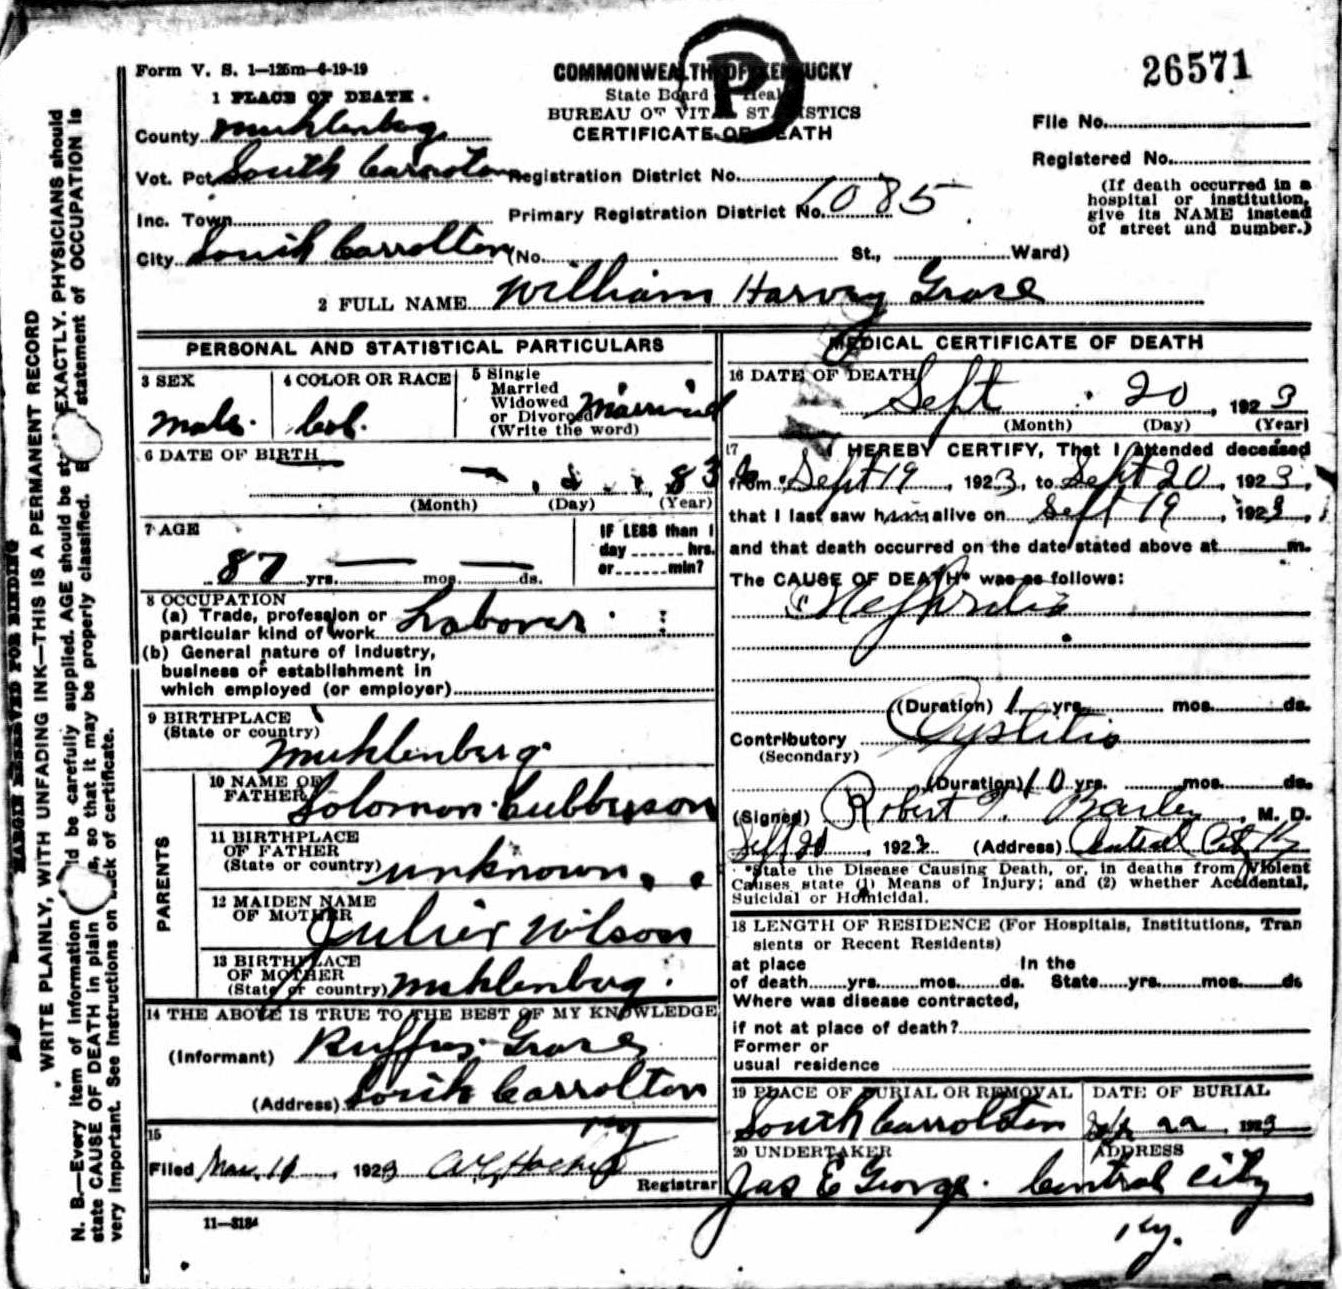 Form V. S. 1—125m—6-19-19
COMMONWEALTH OF KENTUCKY
P
26571
1 PLACE OF DEATH
State Board Heal
BUREAU OF VITAL STATISTICS
CERTIFICATE OF DEATH
County Muhlenberg
File No.
Registered No.
Vot. Pct. South Carrolton
Registration District No.
(If death occurred in a
hospital or institution,
give its NAME instead
of street and number.)
Inc. Town
Primary Registration District No. 1085
City South Carrollton (No. St., Ward)
2 FULL NAME William Harvey Grace
PERSONAL AND STATISTICAL PARTICULARS
3 SEX
male
4 COLOR OR RACE
Col.
5 Single
Married
Widowed
or Divorced Married
(Write the word)
6 DATE OF BIRTH
83
(Month) (Day) (Year)
7 AGE
87 yrs. mos. ds.
IF LESS than 1
day hrs.
or min?
8 OCCUPATION
(a) Trade, profession or
particular kind of work Laborer
(b) General nature of Industry,
business or establishment in
which employed (or employer)
9 BIRTHPLACE
(State or country)
Muhlenberg
PARENTS
10 NAME OF
FATHER Solomon Cubberson
11 BIRTHPLACE
OF FATHER
(State or country) unknown
12 MAIDEN NAME
OF MOTHER Wilson
13 BIRTHPLACE
OF MOTHER
(State or country) Muhlenberg.
14 THE ABOVE IS TRUE TO THE BEST OF MY KNOWLEDGE
(Informant) Ruffus Grace
(Address) South Carrolton
Ky
15
Filed 1923
Registrar
11—3184
MEDICAL CERTIFICATE OF DEATH
16 DATE OF DEATH
Sept 20, 1923
(Month) (Day) (Year)
17 I HEREBY CERTIFY, That I attended deceased
from Sept 19, 1923, to Sept 20, 1923,
that I last saw him alive on Sept 19, 1923,
and that death occurred on the date stated above at m.
The CAUSE OF DEATH* was as follows:
Nephritis
(Duration) 1 yrs. mos. ds.
Contributory Cystitis
(Secondary)
(Duration) 10 yrs. mos. ds.
(Signed) Robert , M. D.
Sept 20, 192 (Address) Central City Ky
*State the Disease Causing Death, or, in deaths from Violent
Causes state (1) Means of Injury; and (2) whether Accidental,
Suicidal or Homicidal.
18 LENGTH OF RESIDENCE (For Hospitals, Institutions, Tran
sients or Recent Residents)
at place In the
of death yrs. mos. ds. State yrs. mos. ds
Where was disease contracted,
if not at place of death?
Former or
usual residence
19 PLACE OF BURIAL OR REMOVAL
South Carrolton
DATE OF BURIAL
Sept 22 1923
20 UNDERTAKER
Jas E George.
ADDRESS
Central City
Ky.
MARGIN RESERVED FOR BINDING
WRITE PLAINLY, WITH UNFADING INK—THIS IS A PERMANENT RECORD
N. B.—Every item of information should be carefully supplied. AGE should be st EXACTLY. PHYSICIANS should
state CAUSE OF DEATH in plain s, so that it may be properly classified. E statement of OCCUPATION is
very important. See instructions on back of certificate.